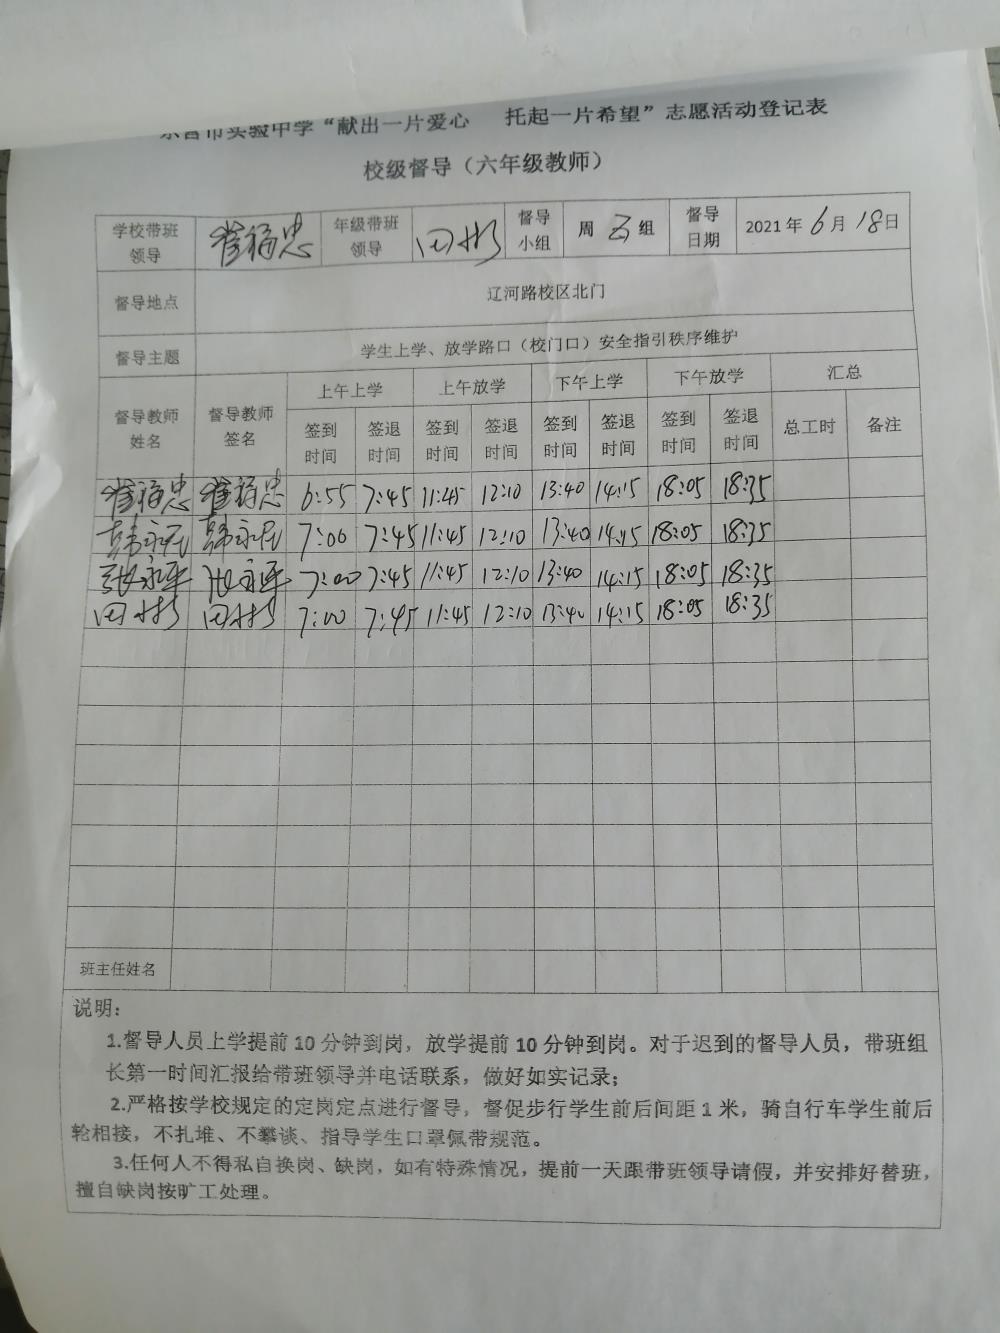 东营市实验中学“献出一片爱心 托起一片希望”志愿活动登记表
校级督导（六年级教师）
学校带班领导 崔福忠 年级带班领导 田彬 督导小组 周五组 督导日期 2021年6月18日
督导地点 辽河路校区北门
督导主题 学生上学、放学路口（校门口）安全指引秩序维护
督导教师姓名 督导教师签名 上午上学 上午放学 下午上学 下午放学 汇总
签到时间 签退时间 签到时间 签退时间 签到时间 签退时间 签到时间 签退时间 总工时 备注
崔福忠 崔福忠 6:55 7:45 11:45 12:10 13:40 14:15 18:05 18:35
韩永 韩永 7:00 7:45 11:45 12:10 13:40 14:15 18:05 18:35
张永平 张永平 7:00 7:45 11:45 12:10 13:40 14:15 18:05 18:35
田彬 田彬 7:00 7:45 11:45 12:10 13:40 14:15 18:05 18:35
班主任姓名
说明：
1.督导人员上学提前10分钟到岗，放学提前10分钟到岗。对于迟到的督导人员，带班组
长第一时间汇报给带班领导并电话联系，做好如实记录；
2.严格按学校规定的定岗定点进行督导，督促步行学生前后间距1米，骑自行车学生前后
轮相接，不扎堆、不攀谈、指导学生口罩佩带规范。
3.任何人不得私自换岗、缺岗，如有特殊情况，提前一天跟带班领导请假，并安排好替班，
擅自缺岗按旷工处理。